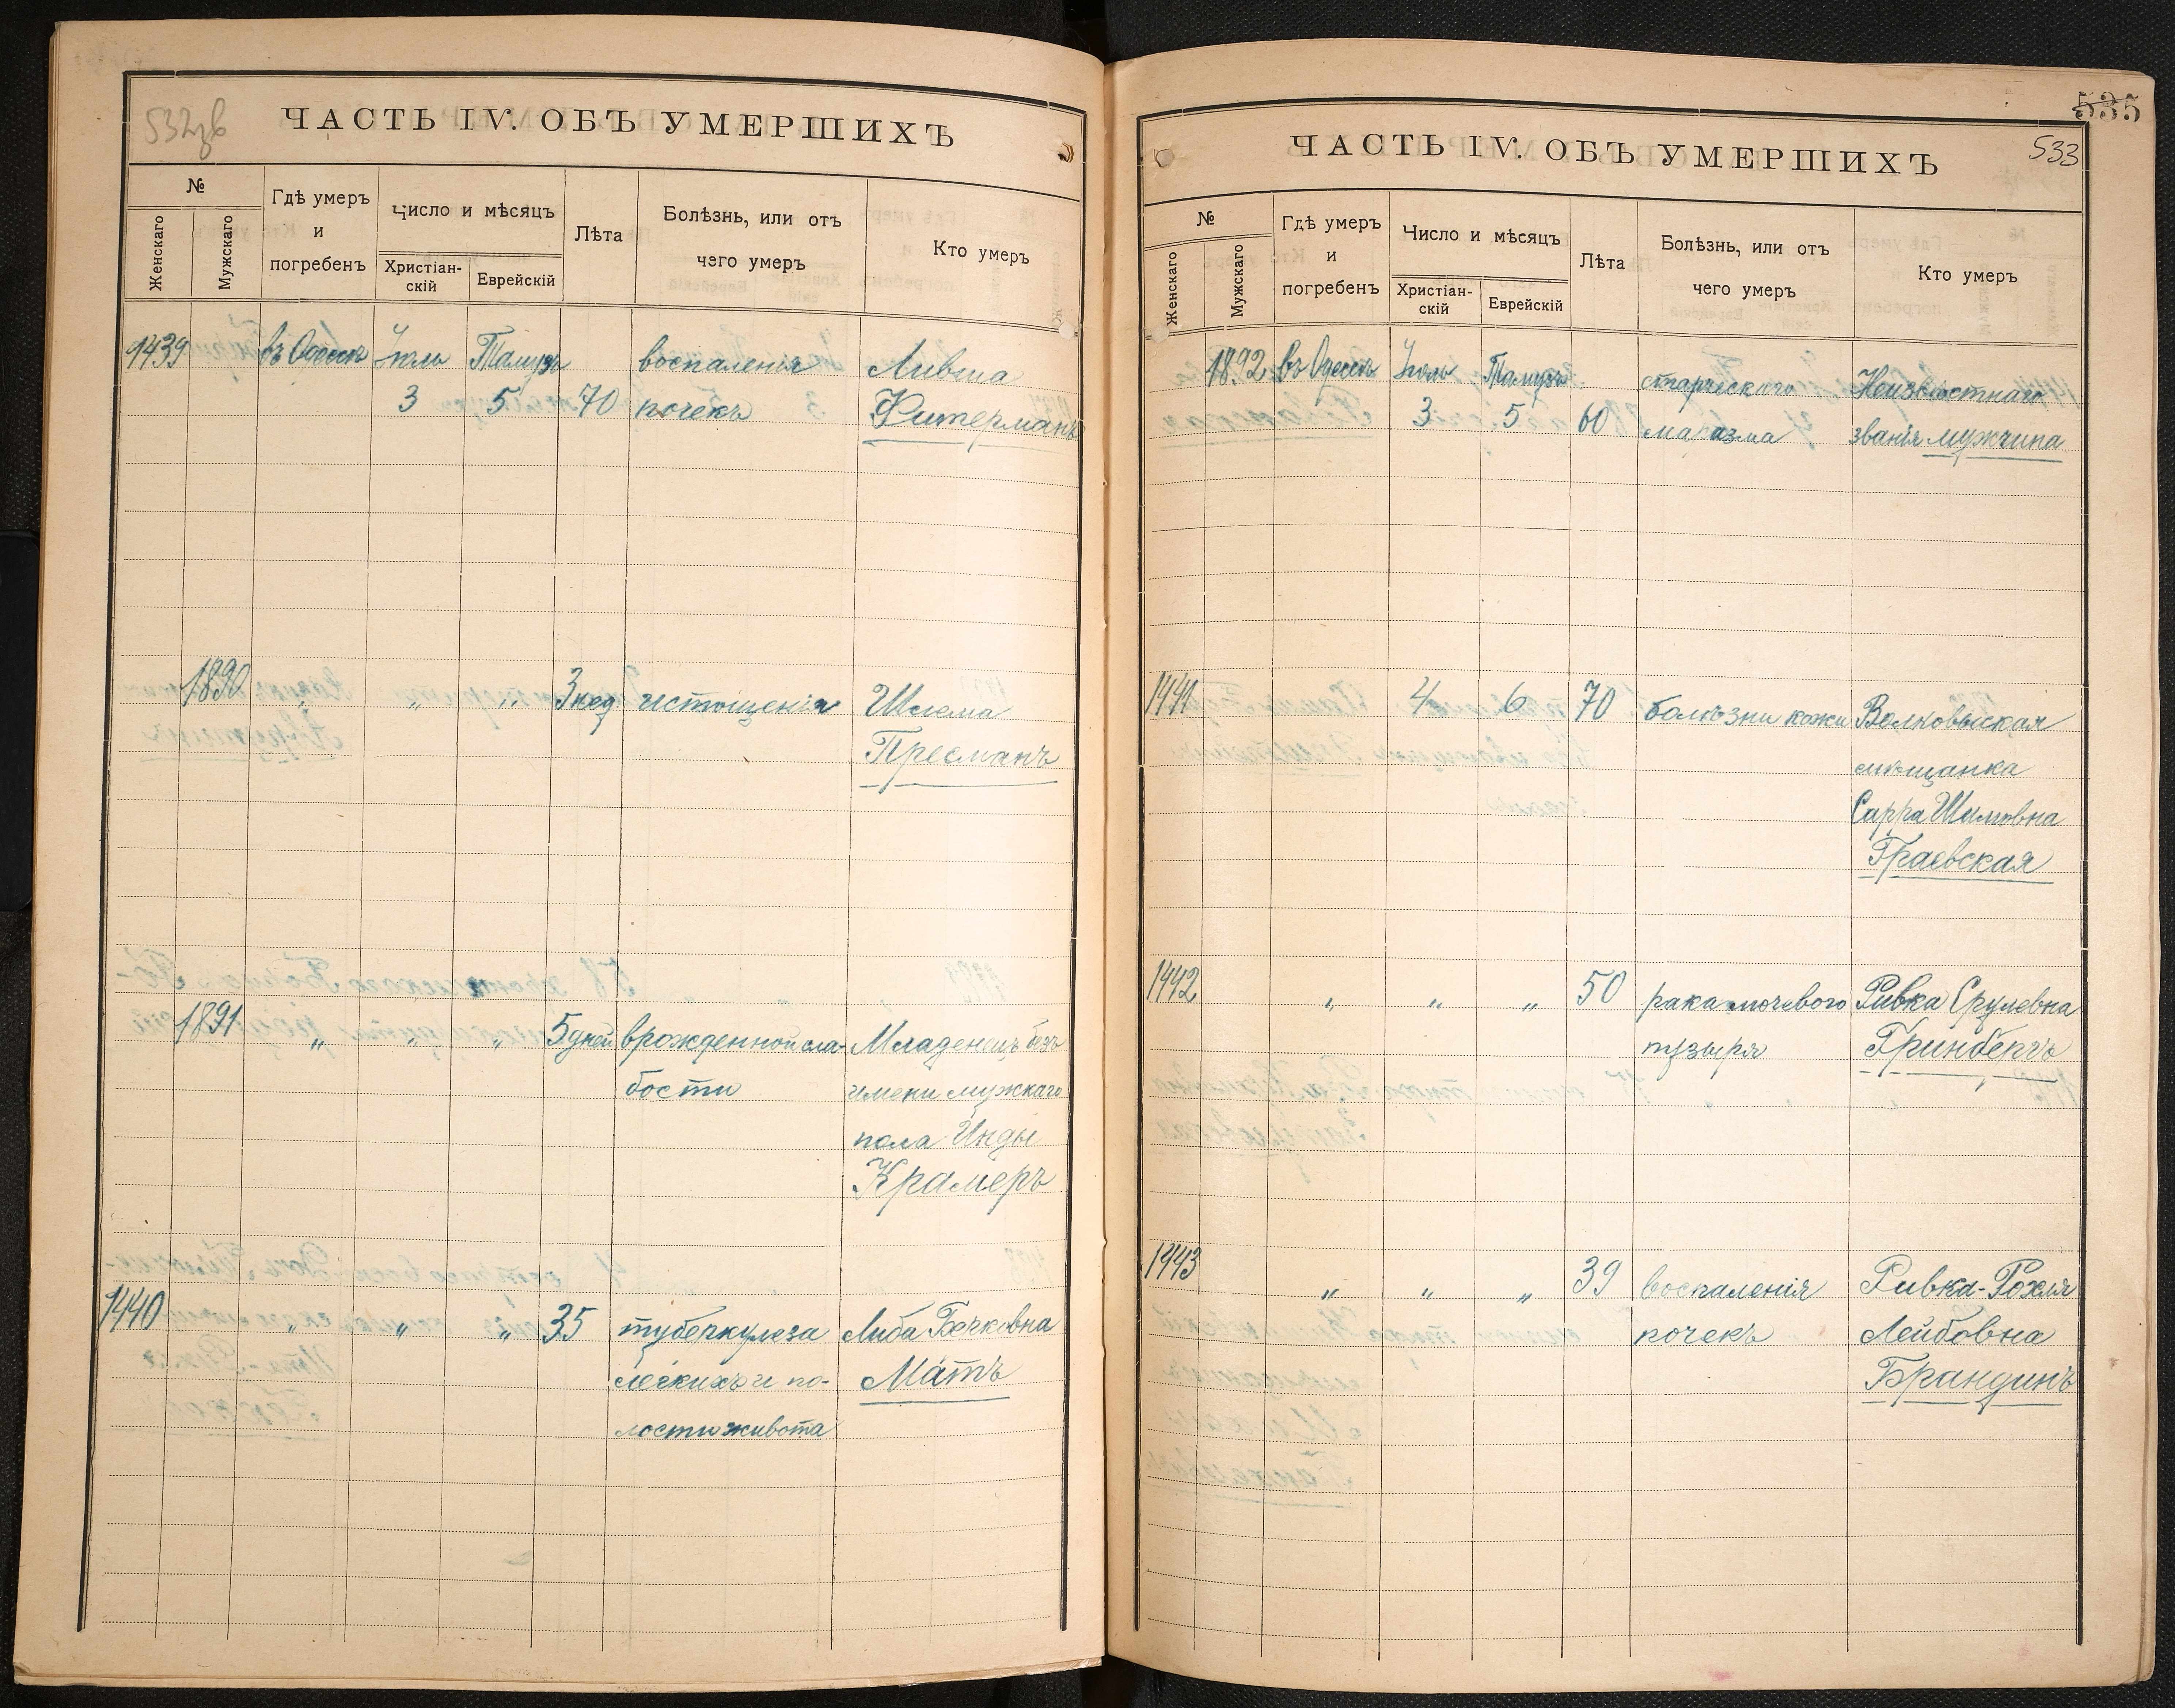 532зв
ЧАСТЬ IV. ОБЪ УМЕРШИХЪ
№
Женскаго
Мужскаго
Гдѣ умеръ
и
погребенъ
Число и мѣсяцъ
Христіан-
скій
Еврейскій
Лѣта
Болѣзнь, или отъ
чего умеръ
Кто умеръ
1439 въ Одессѣ Іюль Тамузъ воспаленія Лившa
3 5 70 почекъ Фитерманъ
1890 „ „ „ 3 нед истощенія Шлема
Пресманъ
1891 „ „ „ 5 дней врожденной сла- Младенецъ безъ
бости имени мужскаго
пола Инды
Крамеръ
1440 „ „ „ 35 туберкулеза Либа Берковна
легкихъ и по- Матъ
лости живота
535
533
ЧАСТЬ IV. ОБЪ УМЕРШИХЪ
№
Женскаго
Мужскаго
Гдѣ умеръ
и
погребенъ
Число и мѣсяцъ
Христіан-
скій
Еврейскій
Лѣта
Болѣзнь, или отъ
чего умеръ
Кто умеръ
1892 въ Одессѣ Іюль Тамузъ старческаго Неизвѣстнаго
3 5 60 маразма званія мужчина
1441 4 6 70 болѣзни кожи Волковыская
мѣщанка
Сарра
Граевская
1442 „ „ „ 50 рака мочевого Ривка Срулевна
пузыря Гринбергъ
1443 „ „ „ 39 воспаленія Ривка-Рохля
почекъ Лейбовна
Брандинъ